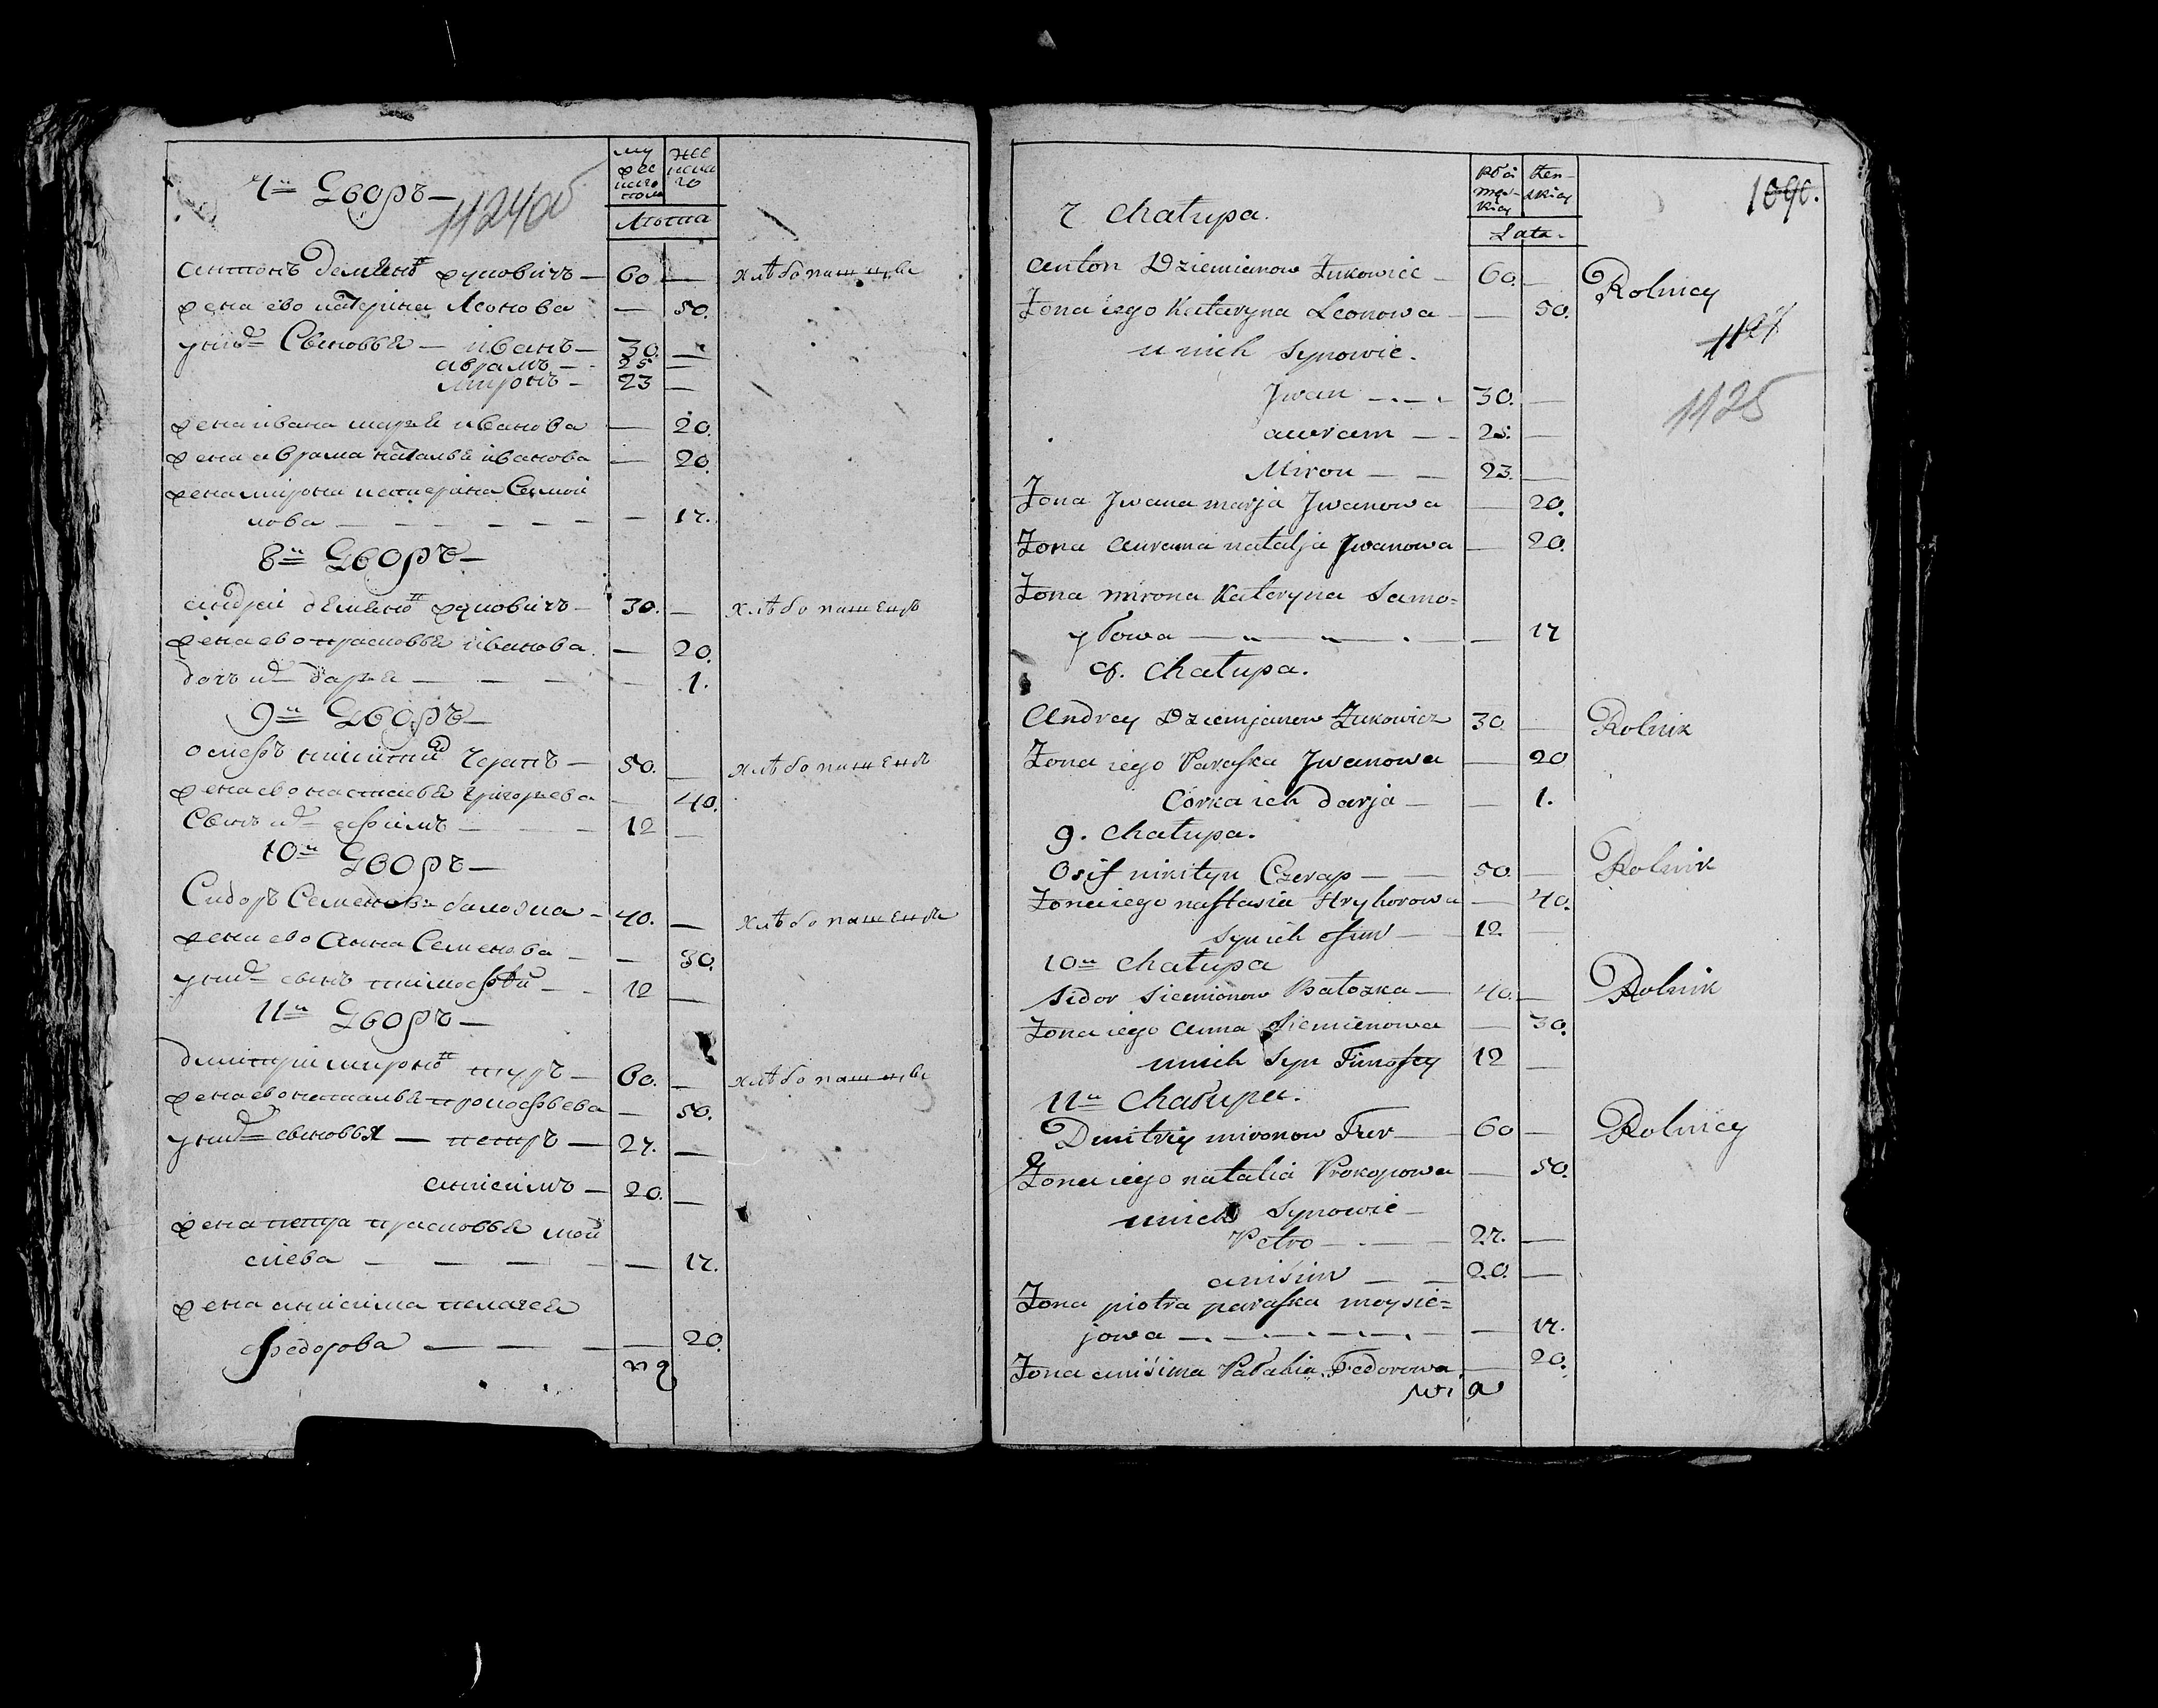 7й Дворъ
1124об
му
жес
каго
пола
же
нска
го
Лѣта
антонъ демянов жуковичъ — 60 — хлѣбопашцы
жена ево катерина Леонова — 50.
у них Сыновья — иванъ — 30. —
аврамъ — 25 —
миронъ — 23 —
жена ивана марья иванова — 20.
жена аврама наталья иванова — 20.
жена мирона катерина Самой
лова — 17.
8й Дворъ
андрей демянов жуковичъ — 30. — хлѣбопашецъ
жена ево прасковья иванова — 20.
дочь их дарья — 1.
9й Дворъ
осифъ никитин Черапъ — 50. — хлѣбопашецъ
жена ево настасья григорьева — 40.
Сынъ их ефимъ — 12 —
10й Дворъ
Сидоръ Семенов балозка — 40. — хлѣбопашецъ
жена ево Анна Семенова — 30.
у них сынъ тимофѣй — 12 —
11й Дворъ
дмитрій миронов туръ — 60. — хлѣбопашцы
жена ево наталья прокофьева — 50.
у них сыновья — петръ — 27. —
анисимъ — 20. —
жена петра прасковья мой
сиева — 17.
жена анисима палагея
федорова — 20.
Płci
męz-
kiey
Żen-
skiey
Lata
7 Chałupa.
1090.
Anton Dziemianow Żukowicz — 60. — Rolnicy
Żona iego Kataryna Leonowa — 50.
u nich Synowie.
1125
Jwan — 30. —
auram — 25. —
Miron — 23. —
Żona Jwana marja Jwanowa — 20.
Żona aurama natalja Jwanowa — 20.
Żona mirona Kateryna Samo=
yłowa — 17
8. Chałupa.
Andrey Dziemjanow Żukowicz 30. — Rolnik
Żona iego Paraska Jwanowa — 20
Córka ich darja — 1.
9. Chałupa.
Osif nikityn Czerap — 50. — Rolnik
Żona iego nastasia Hryhorowa — 40.
Syn ich efim — 12. —
10а Chałupa
Sidor Siemionow Bałozka — 40. — Rolnik
Żona iego anna Siemienowa — 30.
u nich Syn Timofey 12 —
11а Chałupa.
Dmitriy mironow Tur — 60 — Rolnicy
Żona iego natalia Prokopowa — 50.
u nich Synowie —
Petro — 27. —
anisim — 20. —
Żona piotra paraska moysie=
jowa — 17.
Żona anisima Pałahia Fedorowa — 20.